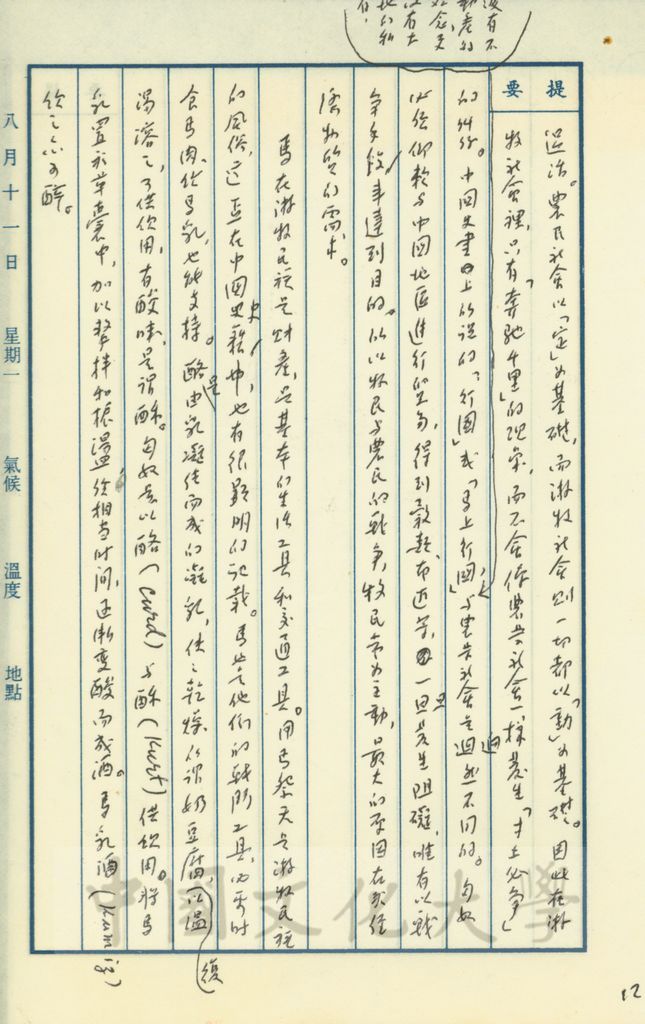 沒有不
動產的
紀念
沒有土
地的
提要
遷徙。農民社會以「定」為基礎,而游牧社會則一切都以「動」為基礎。因此在游
牧社會裡,只有「奔馳千里」的現象,而不會像農業社會一樣發生「寸土必爭」
的糾紛。中國史書上所說的「行國」或「馬上行國」,與農業社會是迥然不同的。匈奴
必須仰賴與中國地區進行貿易,得到穀類、布疋等,一旦發生阻礙,唯有以戰
爭手段來達到目的。所以牧民與農民的戰爭,牧民常為主動,最大的原因在求經
濟物質的需求。
馬在游牧民族是財產,是基本的生活工具和交通工具。用馬祭天是游牧民族
的風俗,這在中國史籍中,也有很顯明的記載。馬也是他們的戰鬥工具,必要時
食馬肉,飲馬乳,也能支持。酪是由乳凝結而成的凝乳,使之乾燥,所謂奶豆腐,以溫
湯溶之,可供飲用,有酸味,是謂酥。匈奴是以酪(curd)与酥(Kurt)供飲用。將馬
乳置於革囊中,加以攪拌和振盪,經相當時間,逐漸變酸而成酒。馬乳酒(Kumig)
飲之亦可醉。
復
八月十一日 星期一 氣候 溫度 地點
中國文化大學
12